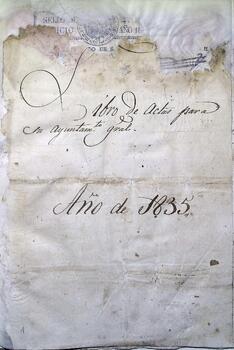 SELLO
Libro de Actas para
su Ayuntam.to gral.
Año de 1835